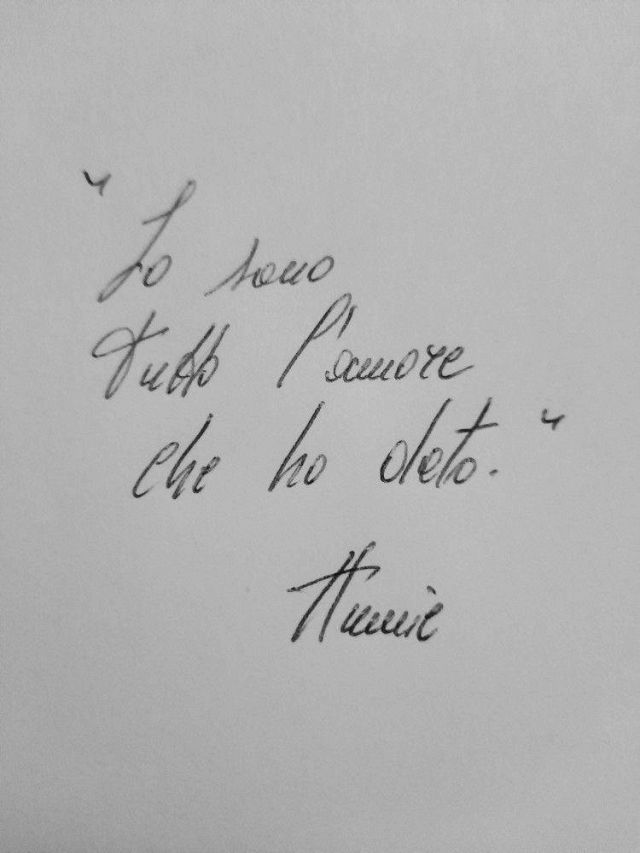 "Io sono
tutto l'amore
che ho dato."
Annie